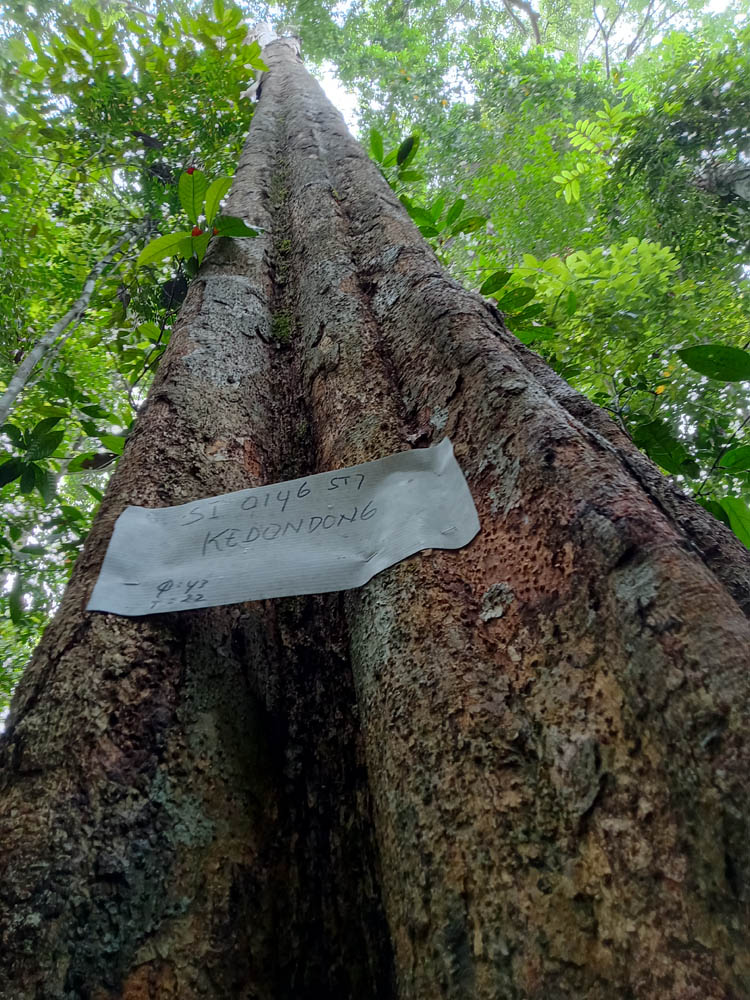 SI 0146 ST7
KEDONDONG
Φ: 43
T = 22